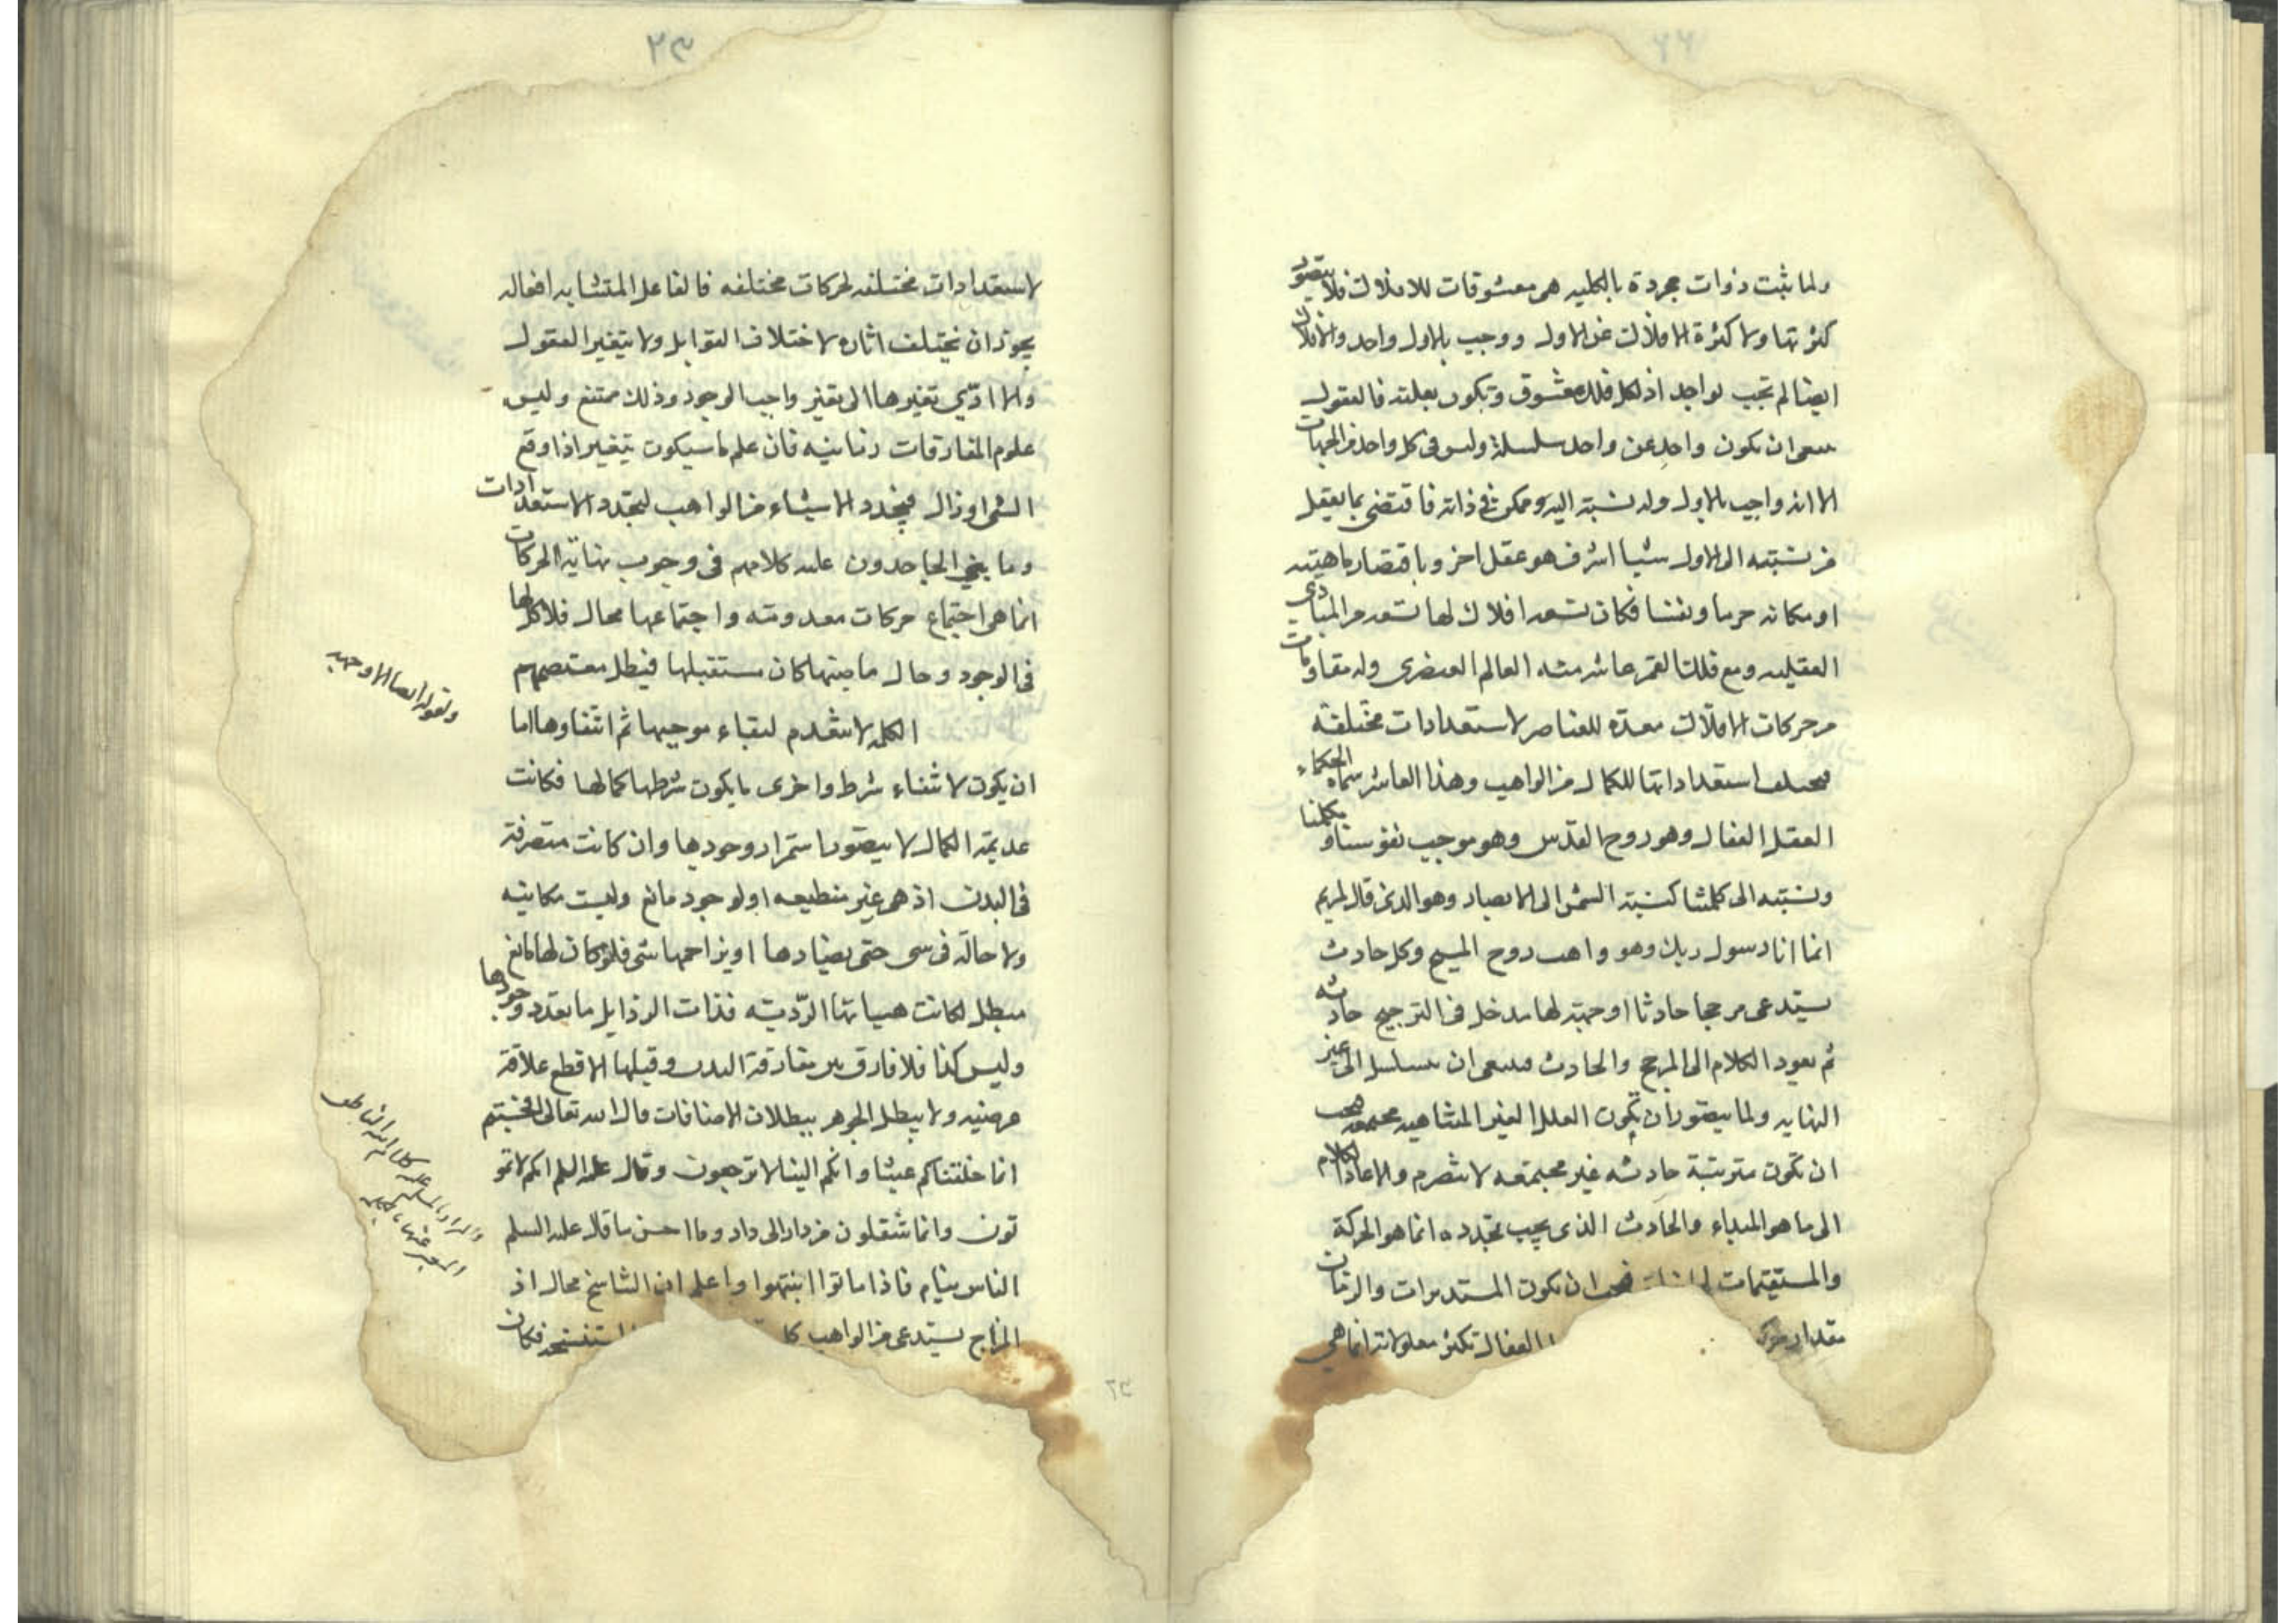 ولما ثبت ذوات مجردة بالكليه هى معشوقات للافلاك فلا يتصور
كثرتها ولا كثرة الافلاك عن الاول ووجب بالاول واحد والافلاك
ايضا لم تجب لواحد اذ لكل فلك معشوق وتكون بعلته فالعقول
ان يكون واحد عن واحد سلسلة وليس فى كل واحد من الجهات
الا انه واجب بالاول وله نسبة اليه وممكن فى ذاته فاقتضى بما يعقل
من نسبته الى الاول شيا اشرف هو عقل اخر وباقتضاء ماهيته
او مكانه جرما ونفسا فكان تسعه افلاك لها تسعه من المبادى
العقليه ومع فلك القمر عاشر منه العالم العنصرى وله مقاومات
من حركات الافلاك معدة للعناصر لاستعدادات مختلفة
استعداداتها للكمال من الواهب وهذا العاشر سماه الحكماء
العقل الفعال وهو روح القدس وهو موجب نفوسنا و مكملنا
ونسبته الى كلمتنا كنسبة الشمس الى الابصار وهو الذى قال لمريم
انما انا رسول ربك وهو واهب روح المسيح وكل حادث
يستدعى مرجحا حادثا او جهة لها مدخل فى الترجيح حادثه
ثم يعود الكلام الى المرجح والحادث فينبغى ان يتسلسل الى غير
النهايه ولما يتصور ان تكون العلل الغير المتناهيه مجتمعه فيجب
ان تكون مترتبة حادثه غير مجتمعه لا تنصرم والا عاد الكلام
الى ما هو المبداء والحادث الذى يجب تجدده انما هو الحركة
والمستقيمات فيجب ان تكون المستديرات والزمان
مقدار حركة الفعال تكثر معلولاته انما هى
٢٣
لاستعدادات مختلفه لحركات مختلفه فالفاعل المتشابه افعاله
يجوز ان يختلف اثاره لاختلاف القوابل ولا يتغير العقول
والا ادى تغيرها الى تغير واجب الوجود وذلك ممتنع وليس
علوم المفارقات زمانيه فان علم ما سيكون يتغير اذا وقع
الشى او زال فيتجدد الاشياء من الواهب لتجدد الاستعدادات
وما يبنى الجاحدون عليه كلامهم فى وجوب نهاية الحركات
انما هى اجتماع حركات معدومة واجتماعها محال فلا كل لها
فى الوجود وحال ماضيها كان مستقبلها فيبطل معتصمهم
الكلمه لا تنعدم لبقاء موجبها ثم انتفاوها اما
ان يكون لانتفاء شرط واخرى ما يكون شرطها كمالها فكانت
عديمة الكمال لا يتصور استمرار وجودها وان كانت متصرفة
فى البدن اذ هى غير منطبعه او لوجود مانع وليست مكانيه
ولا حالة فى شى حتى يضادها او يزاحمها شى فلو كان لها مانع
مبطل لكانت هيباتها الرديه فذات الرذايل ما بعدد وجودها
وليس كذا فلا فارق بين مفارقة البدن وقبلها الا قطع علاقة
عرضيه ولا يبطل الجوهر ببطلان الاضافات قال الله تعالى افحسبتم
انما خلقناكم عبثا وانكم الينا لا ترجعون وقال عليه السلم انكم لا تمو
تون وانما تنقلون من دار الى دار وما احسن ما قال عليه السلم
الناس نيام فاذا ماتوا انتبهوا واعلم ان التناسخ محال اذ
المزاج يستدعى من الواهب كا فكان
ونقول ايضا